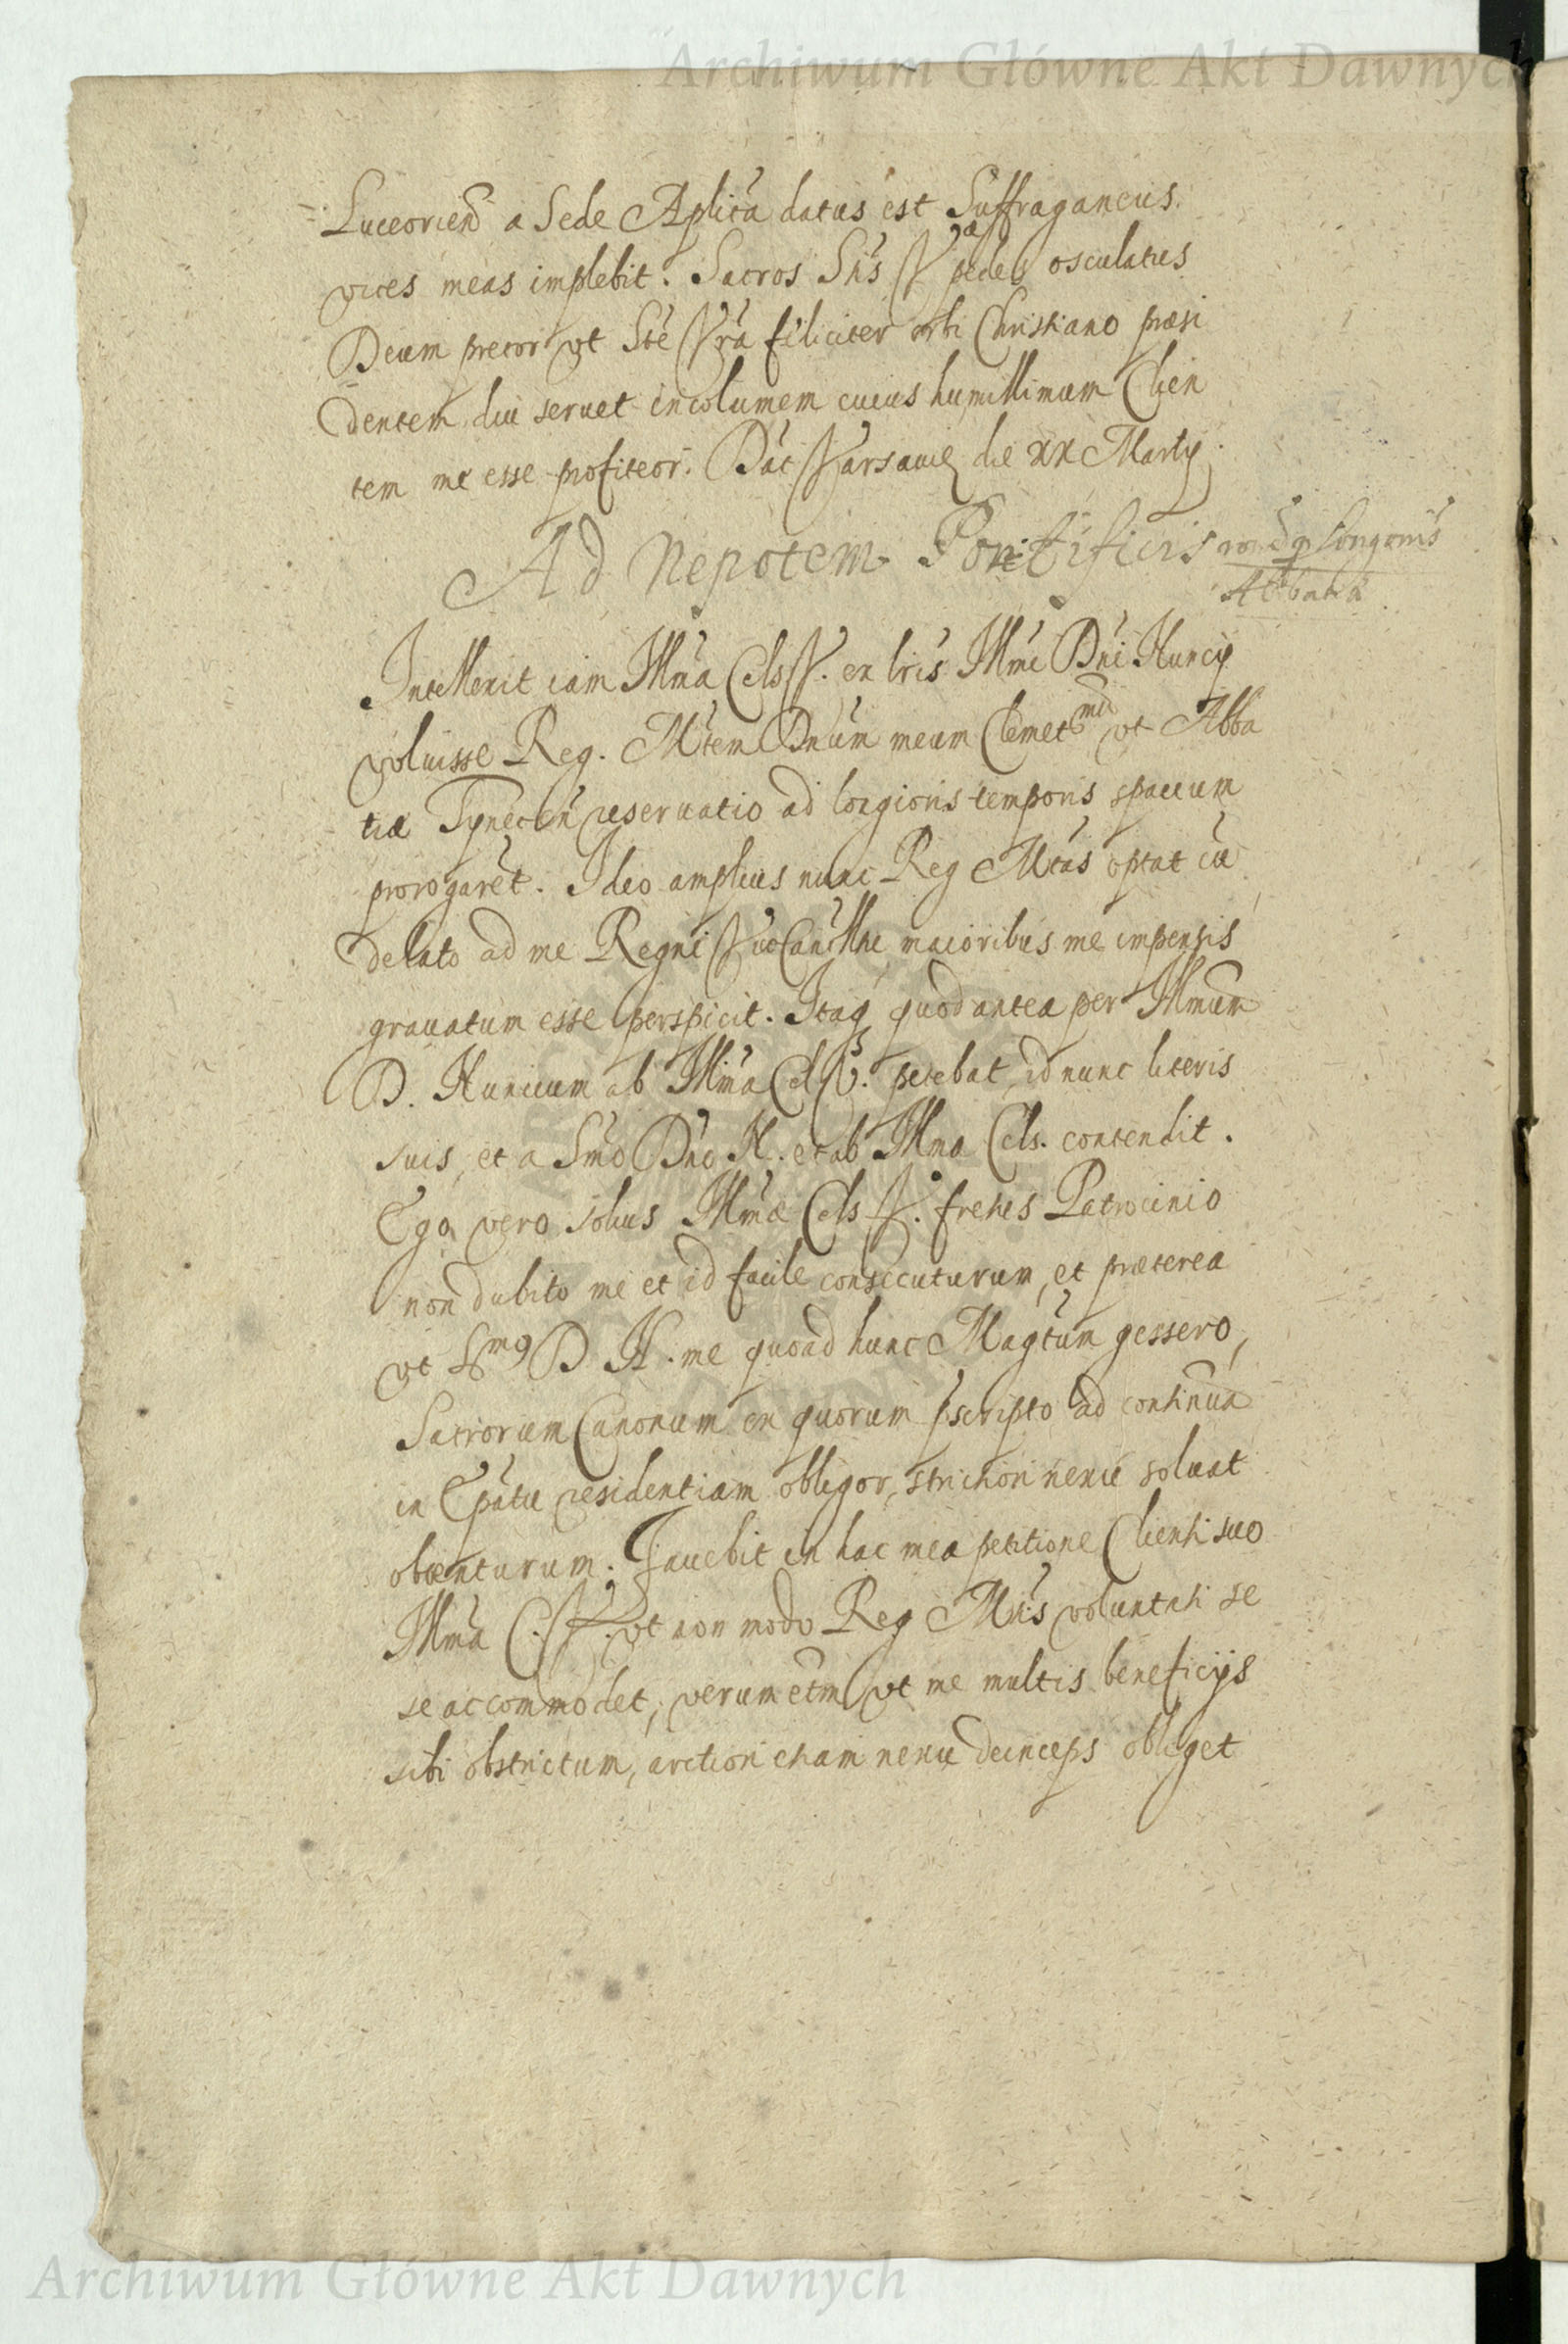 Archiwum Główne Akt Dawnych
Luceorień a Sede Aplica datus est Suffraganeus
vices meas implebit. Sacros Stis V pedes osculatus
Deum precor vt Ste Vra feliciter orbi Christiano præsi
dentem diu seruet incolumem cuius humillimum Clien
tem me esse profiteor. Dat Varsauię die xx Martij.
Ad Nepotem Pontificis
Abbatia
Intellexit iam Illma Cels V. ex lris Illmi Dni Nuncij
voluisse Reg. Mtem Dnum meum Clemet mu vt Abba
tiæ Tynecen reseruatio ad longioris temporis spacium
prorogaret. Ideo amplius nunc Reg Mtas optat cu
delato ad me Regni ViceCancellne maioribus me impensis
grauatum esse perspicit. Itaq quod antea per Illmum
D. Nuncium ab Illma Cel V. petebat, id nunc literis
suis, et a Smo Dno N. et ab Illma Cels. contendit.
Ego vero solius Illmæ Cels V. fretus Patrocinio
non dubito me et id facile consecuturum, et præterea
vt Smo D N. me quoad hunc Magtum gessero,
Sacrorum Canonum ex quorum pscripto ad continua
in Epatu residentiam obligor, strictiori nexu soluat
obtenturum. Fauebit in hac mea petitione Clienti suo
Illma C. V. vt non modo Reg Mtis voluntati se
se accommodet, verum etm vt me multis beneficijs
sibi obstrictum, arctiori etiam nexu deinceps obliget
Archiwum Główne Akt Dawnych